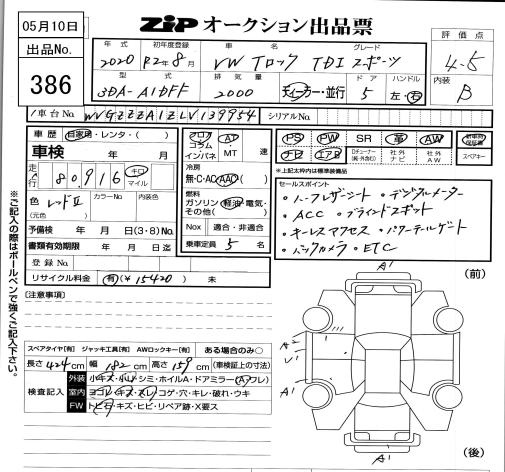 05月10日
ZiP オークション出品票
出品No.
386
評価点
4-5
内装
B
年式
2020
初年度登録
R2年8月
車名
VW Tロック
グレード
TDI スポーツ
型式
3DA-A1DFF
排気量
2000
ドア
5
ハンドル
左・右
車台No.
WVGZZZA1ZLV139954
シリアルNo.
車歴
自家用・レンタ・( )
車検
年 月
走行
80,916
キロ
マイル
色
レッドⅡ
(元色)
カラーNo.
内装色
予備検 年 月 日(3・8)No.
書類有効期限 年 月 日迄
登録No.
リサイクル料金 有(¥15420) 未
フロア
コラム
インパネ
AT
・MT
速
冷房
無・C・AC・AAC
燃料
ガソリン・軽油・電気・
その他( )
Nox 適合・非適合
乗車定員 5 名
PS PW SR 革 AW
ナビ エアB
社外
ナビ
社外
AW
スペアキー
※上記太枠内は標準装備品
セールスポイント
・ハーフレザーシート ・デジタルメーター
・ACC ・ブラインドスポット
・キーレスアクセス ・パワーテールゲート
・バックカメラ ・ETC
※ご記入の際はボールペンで強くご記入下さい。
[注意事項]
スペアタイヤ[有] ジャッキ工具[有] AWロックキー[有] ある場合のみ○
長さ 424 cm 幅 182 cm 高さ 159 cm (車検証上の寸法)
検査記入
外装
小キズ・小凹・シミ・ホイルA・ドアミラー(A・ワレ)
室内
ヨゴレ・キズ・スレ・コゲ・穴・キレ・破れ・ウキ
FW
トビ石・キズ・ヒビ・リペア跡・X要ス
A1
(前)
A2
U1
A1
A1
(後)